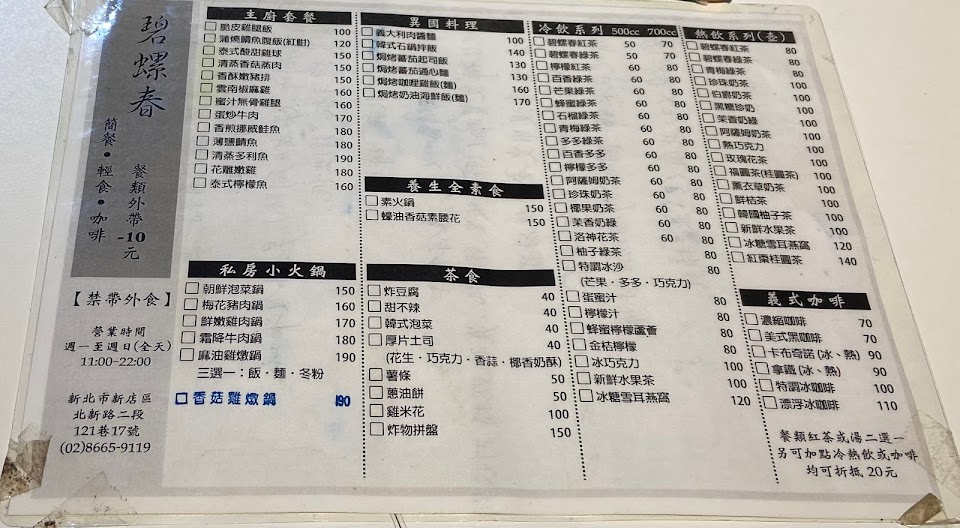 碧螺春
簡餐•輕食•咖啡
餐類外帶-10元
【禁帶外食】
營業時間
週一至週日(全天)
11:00~22:00
新北市新店區
北新路二段
121巷17號
(02)8665-9119
主廚套餐
脆皮雞腿飯 100
蒲燒鯖魚腹飯(紅魽) 120
泰式酸甜雞球 150
清蒸香菇蒸肉 150
香酥嫩豬排 150
雲南椒麻雞 160
蜜汁無骨雞腿 160
蛋炒牛肉 170
香煎挪威鮭魚 180
薄鹽鯖魚 180
清蒸多利魚 190
花雕嫩雞 180
泰式檸檬魚 160
私房小火鍋
朝鮮泡菜鍋 150
梅花豬肉鍋 160
鮮嫩雞肉鍋 170
霜降牛肉鍋 180
麻油雞燉鍋 190
三選一：飯・麵・冬粉
香菇雞燉鍋 190
異國料理
義大利肉醬麵 100
韓式石鍋拌飯 140
焗烤蕃茄起司飯 130
焗烤蕃茄通心麵 130
焗烤咖哩雞飯(麵) 160
焗烤奶油海鮮飯(麵) 170
養生全素食
素火鍋 150
蠔油香菇素腰花 150
茶食
炸豆腐 40
甜不辣 40
韓式泡菜 40
厚片土司 40
(花生・巧克力・香蒜・椰香奶酥)
薯條 50
蔥油餅 50
雞米花 100
炸物拼盤 150
冷飲系列 500cc 700cc
碧螺春紅茶 50 70
碧螺春綠茶 50 70
檸檬紅茶 60 80
百香綠茶 60 80
芒果綠茶 60 80
蜂蜜綠茶 60 80
石榴綠茶 60 80
青梅綠茶 60 80
多多綠茶 60 80
百香多多 60 80
檸檬多多 60 80
阿薩姆奶茶 60 80
珍珠奶茶 60 80
椰果奶茶 60 80
茉香奶綠 60 80
洛神花茶 60 80
柚子綠茶 80
特調冰沙 80
(芒果・多多・巧克力)
蛋蜜汁 80
檸檬汁 80
蜂蜜檸檬蘆薈 80
金桔檸檬 80
冰巧克力 100
新鮮水果茶 100
冰糖雪耳燕窩 120
熱飲系列(壺)
碧螺春紅茶 80
碧螺春綠茶 80
青梅綠茶 80
珍珠奶茶 100
伯爵奶茶 100
黑糖珍奶 100
茉香奶綠 100
阿薩姆奶茶 100
熱巧克力 100
玫瑰花茶 100
福圓茶(桂圓茶) 100
薰衣草奶茶 100
鮮桔茶 100
韓國柚子茶 100
新鮮水果茶 100
冰糖雪耳燕窩 120
紅棗桂圓茶 140
義式咖啡
濃縮咖啡 70
美式黑咖啡 70
卡布奇諾(冰、熱) 90
拿鐵(冰、熱) 90
特調冰咖啡 100
漂浮冰咖啡 110
餐類紅茶或湯二選一
另可加點冷熱飲或咖啡
均可折抵20元